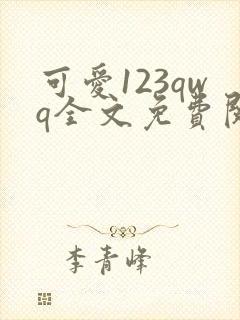 可愛123qw
q全文免費閱
李青峰